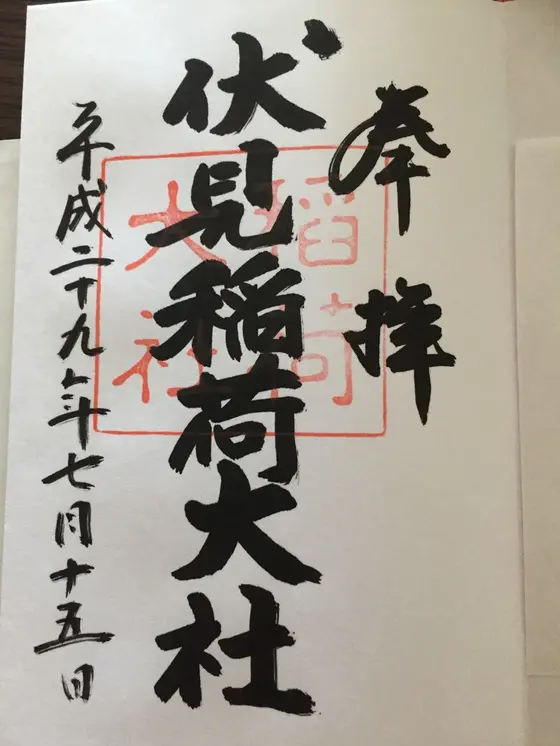 奉拝
伏見稲荷大社
稲荷
大社
平成二十九年七月十五日